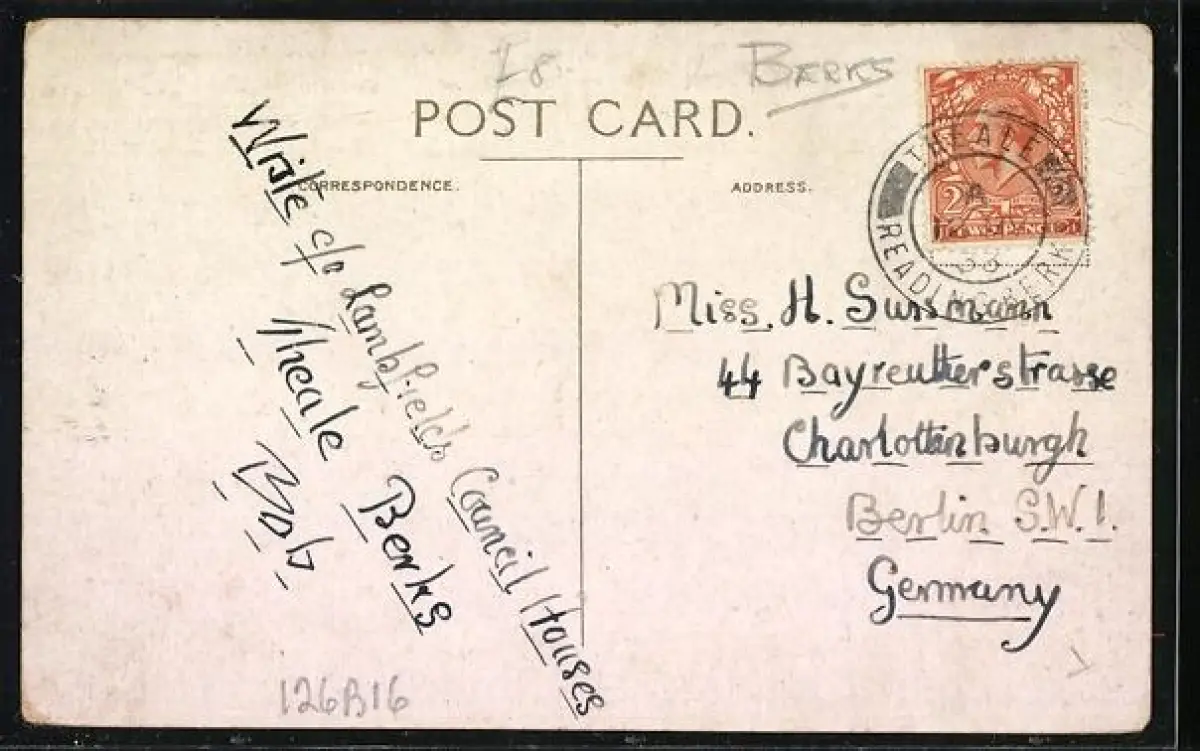 £8
BERKS
POST CARD.
CORRESPONDENCE.
ADDRESS.
THEALE
A
33
READING BERK
2 2
TWOPENCE
Write c/o Lambfield's Council Houses
Theale Berks
Bob
Miss. H. Sussmann
44 Bayreutherstrasse
Charlottenburgh
Berlin. S.W.1.
Germany
126B16